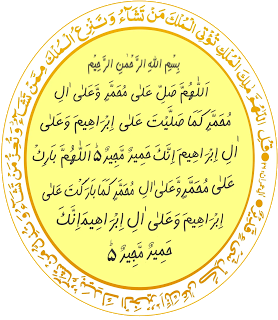 بِسْمِ اللهِ الرَّحْمٰنِ الرَّحِيْمِ
اَللّٰهُمَّ صَلِّ عَلٰى مُحَمَّدٍ وَّعَلٰى اٰلِ
مُحَمَّدٍ كَمَا صَلَّيْتَ عَلٰى اِبْرَاهِيْمَ وَعَلٰى
اٰلِ اِبْرَاهِيْمَ اِنَّكَ حَمِيْدٌ مَّجِيْدٌ ۵ اَللّٰهُمَّ بَارِكْ
عَلٰى مُحَمَّدٍ وَّعَلٰى اٰلِ مُحَمَّدٍ كَمَا بَارَكْتَ عَلٰى
اِبْرَاهِيْمَ وَعَلٰى اٰلِ اِبْرَاهِيْمَ اِنَّكَ
حَمِيْدٌ مَّجِيْدٌ ۵
قُلِ اللّٰهُمَّ مٰلِكَ الْمُلْكِ تُؤْتِى الْمُلْكَ مَنْ تَشَآءُ وَتَنْزِعُ الْمُلْكَ مِمَّنْ تَشَآءُ وَتُعِزُّ مَنْ تَشَآءُ وَتُذِلُّ مَنْ تَشَآءُ بِيَدِكَ الْخَيْرُ اِنَّكَ عَلٰى كُلِّ شَىْءٍ قَدِيْرٌ